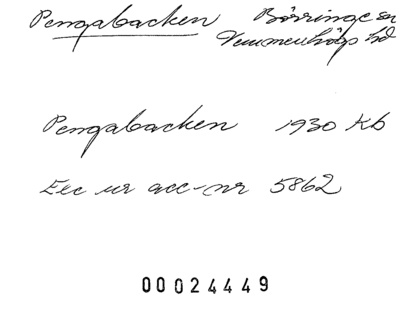 Pengabacken Börringe sn
Vemmenhögs hd
Pengabacken 1930 Kb
Exc ur acc-nr 5862
00024449